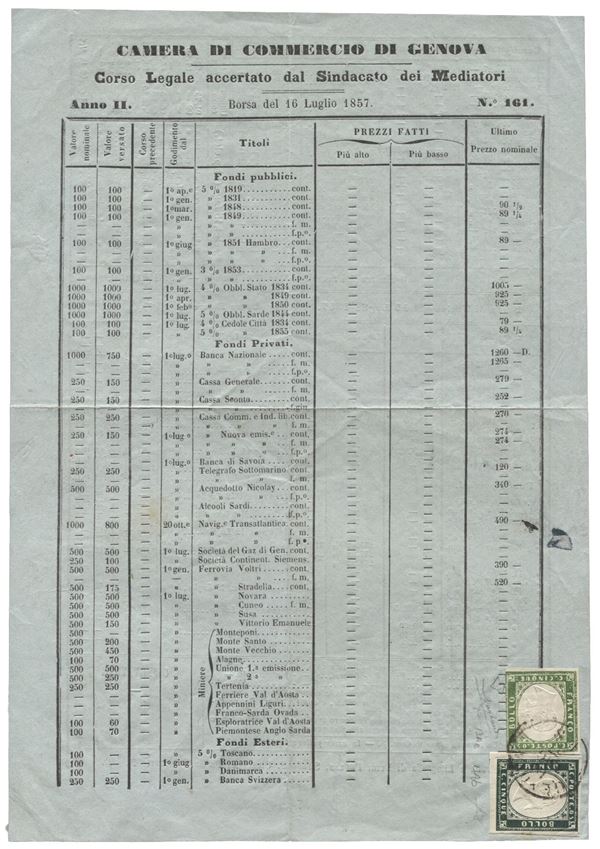 CAMERA DI COMMERCIO DI GENOVA
Corso Legale accertato dal Sindacato dei Mediatori
Anno II. Borsa del 16 Luglio 1857. N.º 161.
Valore nominale Valore versato Corso precedente Godimento dal Titoli PREZZI FATTI Più alto Più basso Ultimo Prezzo nominale
Fondi pubblici.
100 100 — 1º ap.e 5 0/0 1819.......... cont. — —
100 100 — 1º gen. » 1831.......... cont. — —
100 100 — 1º mar. » 1848.......... cont. — — 90 1/2
100 100 — 1º gen. » 1849.......... cont. — — 89 1/4
— — — » » » .......... f. m. — —
— — — » » » .......... f.p.º — —
100 100 — 1º giug » 1851 Hambro... cont. — — 89 —
— — — » » » » f. m. — —
— — — » » » » f.p.º — —
100 100 — 1º gen. 3 0/0 1853.......... cont. — —
1000 1000 — 1º lug. 4 0/0 Obbl. Stato 1834 cont. — — 1005 —
1000 1000 — 1º apr. » » 1849 cont. — — 925 —
1000 1000 — 1º febº » » 1850 cont. — — 925 —
1000 1000 — 1º lug. 5 0/0 Obbl. Sarde 1844 cont. — —
100 100 — 1º lug. 4 0/0 Cedole Città 1834 cont. — — 79 —
100 100 — » 5 0/0 » » 1855 cont. — — 89 1/4
Fondi Privati.
1000 750 — 1º lug.º Banca Nazionale .... cont. — — 1260 —D.
— — — » » » .... f. m. — — 1265 —
— — — » » » .... f.p.º — —
250 150 — » Cassa Generale...... cont. — — 279 —
— — — » » » ...... f. m. — —
250 150 — » Cassa Sconto........ cont. — — 252 —
250 250 — » Cassa Comm. e Ind. lib. cont. — — 270 —
— — — » » » f. m. — —
250 150 — 1º lug º » Nuova emis.e... cont. — — 274 —
— — — » » » » f. m. — — 274 —
— — — » » » » f.p.º — —
— — — 1º lug.º Banca di Savoia .... cont. — —
250 250 — » Telegrafo Sottomarino cont. — — 120 —
— — — » » » f. m. — —
500 500 — » Acquedotto Nicolay... cont. — — 340 —
— — — » » » f.p.º — —
— — — » Alcooli Sardi....... cont. — —
— — — » » » f.p.º — —
1000 800 — 20 ott.e Navig.e Transatlantica. cont. — — 490 —
— — — » » » f. m. — —
— — — » » » f. p.º — —
500 500 — 1º lug. Società del Gaz di Gen. cont. — —
250 100 — » Società Continent. Siemens. — —
500 500 — 1º gen. Ferrovia Voltri ..... cont. — — 390 —
— — — » » » f. m. — —
500 175 — » » Stradella.... cont. — — 520 —
500 500 — 1º lug. » Novara ......... — —
500 500 — » » Cuneo .. f. m. — —
500 500 — » » Susa .......... — —
500 150 — » » Vittorio Emanuele — —
Miniere
500 — — » Monteponi........... — —
500 200 — » Monte Santo ........ — —
500 450 — » Monte Vecchio ...... — —
100 70 — » Alagne.............. — —
500 500 — » Unione 1.a emissione.. — —
500 250 — » » 2.a » — —
250 250 — » Tertenia ........... — —
— — — » Ferriere Val d'Aosta .. — —
— — — » Appennini Liguri.... — —
— — — » Franco-Sarda Ovada .. — —
100 60 — » Esploratrice Val d'Aosta — —
100 70 — » Piemontese Anglo Sarda — —
Fondi Esteri.
— — — » 5 0/0 Toscano........... — —
100 100 — 1º giug » Romano ........... — —
100 100 — » » Danimarca ........ — —
250 250 — 1º gen. » Banca Svizzera .... — —
FRANCO
C. CINQUE
BOLLO
C. POSTE. 05
FRANCO
C. CINQUE
BOLLO
C. POSTE. 05